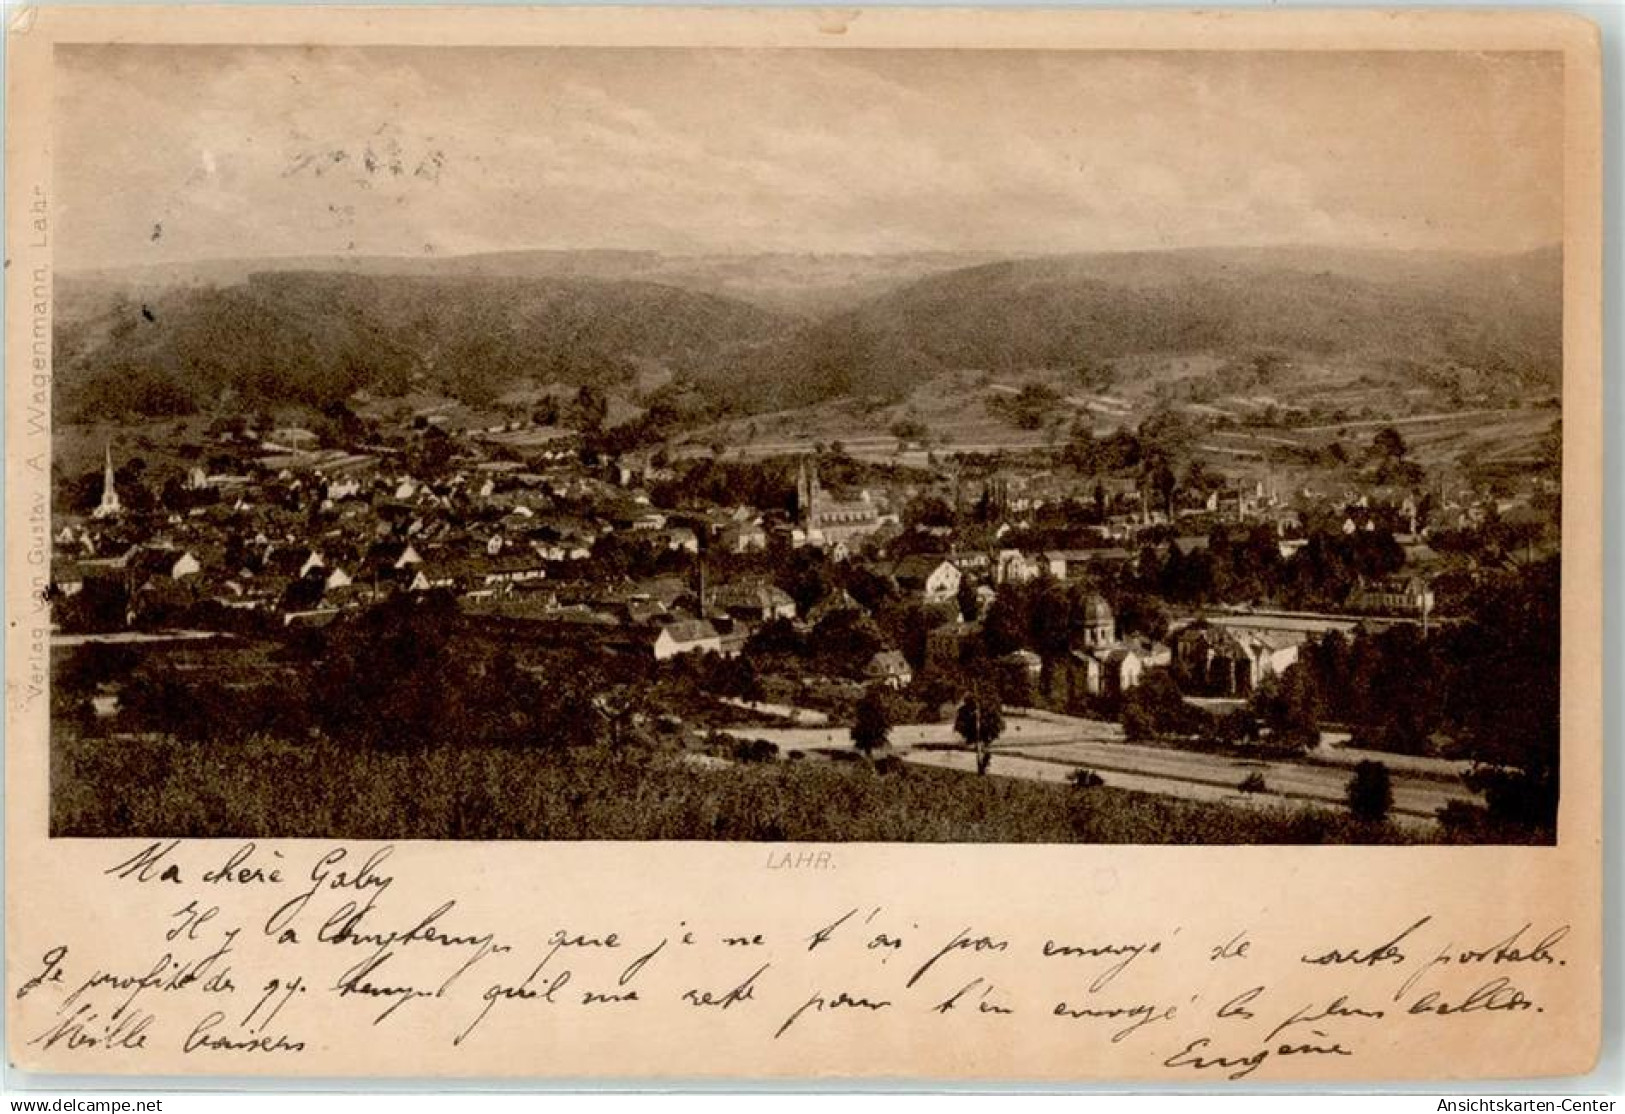 Verlag von Gustav A. Wagenmann, Lahr
LAHR.
Ma chère Gaby
Il y a longtemps que je ne t'ai pas envoyé de cartes postales.
Je profite des qq. temps qu'il me reste pour t'en envoyé les plus belles.
Mille baisers
Eugène
www.delcampe.net
postmarket
Ansichtskarten-Center